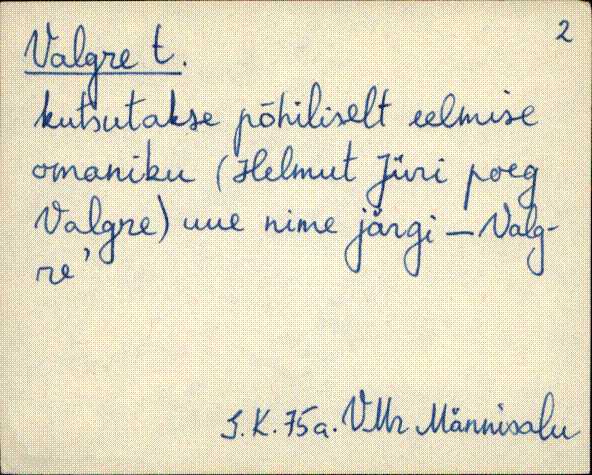 2
Valgre t.
kutsutakse põhiliselt eelmise
omaniku (Helmut Jüri poeg
Valgre) uue nime järgi – Valg-
re'
S.K. 75a. VMr Männisalu